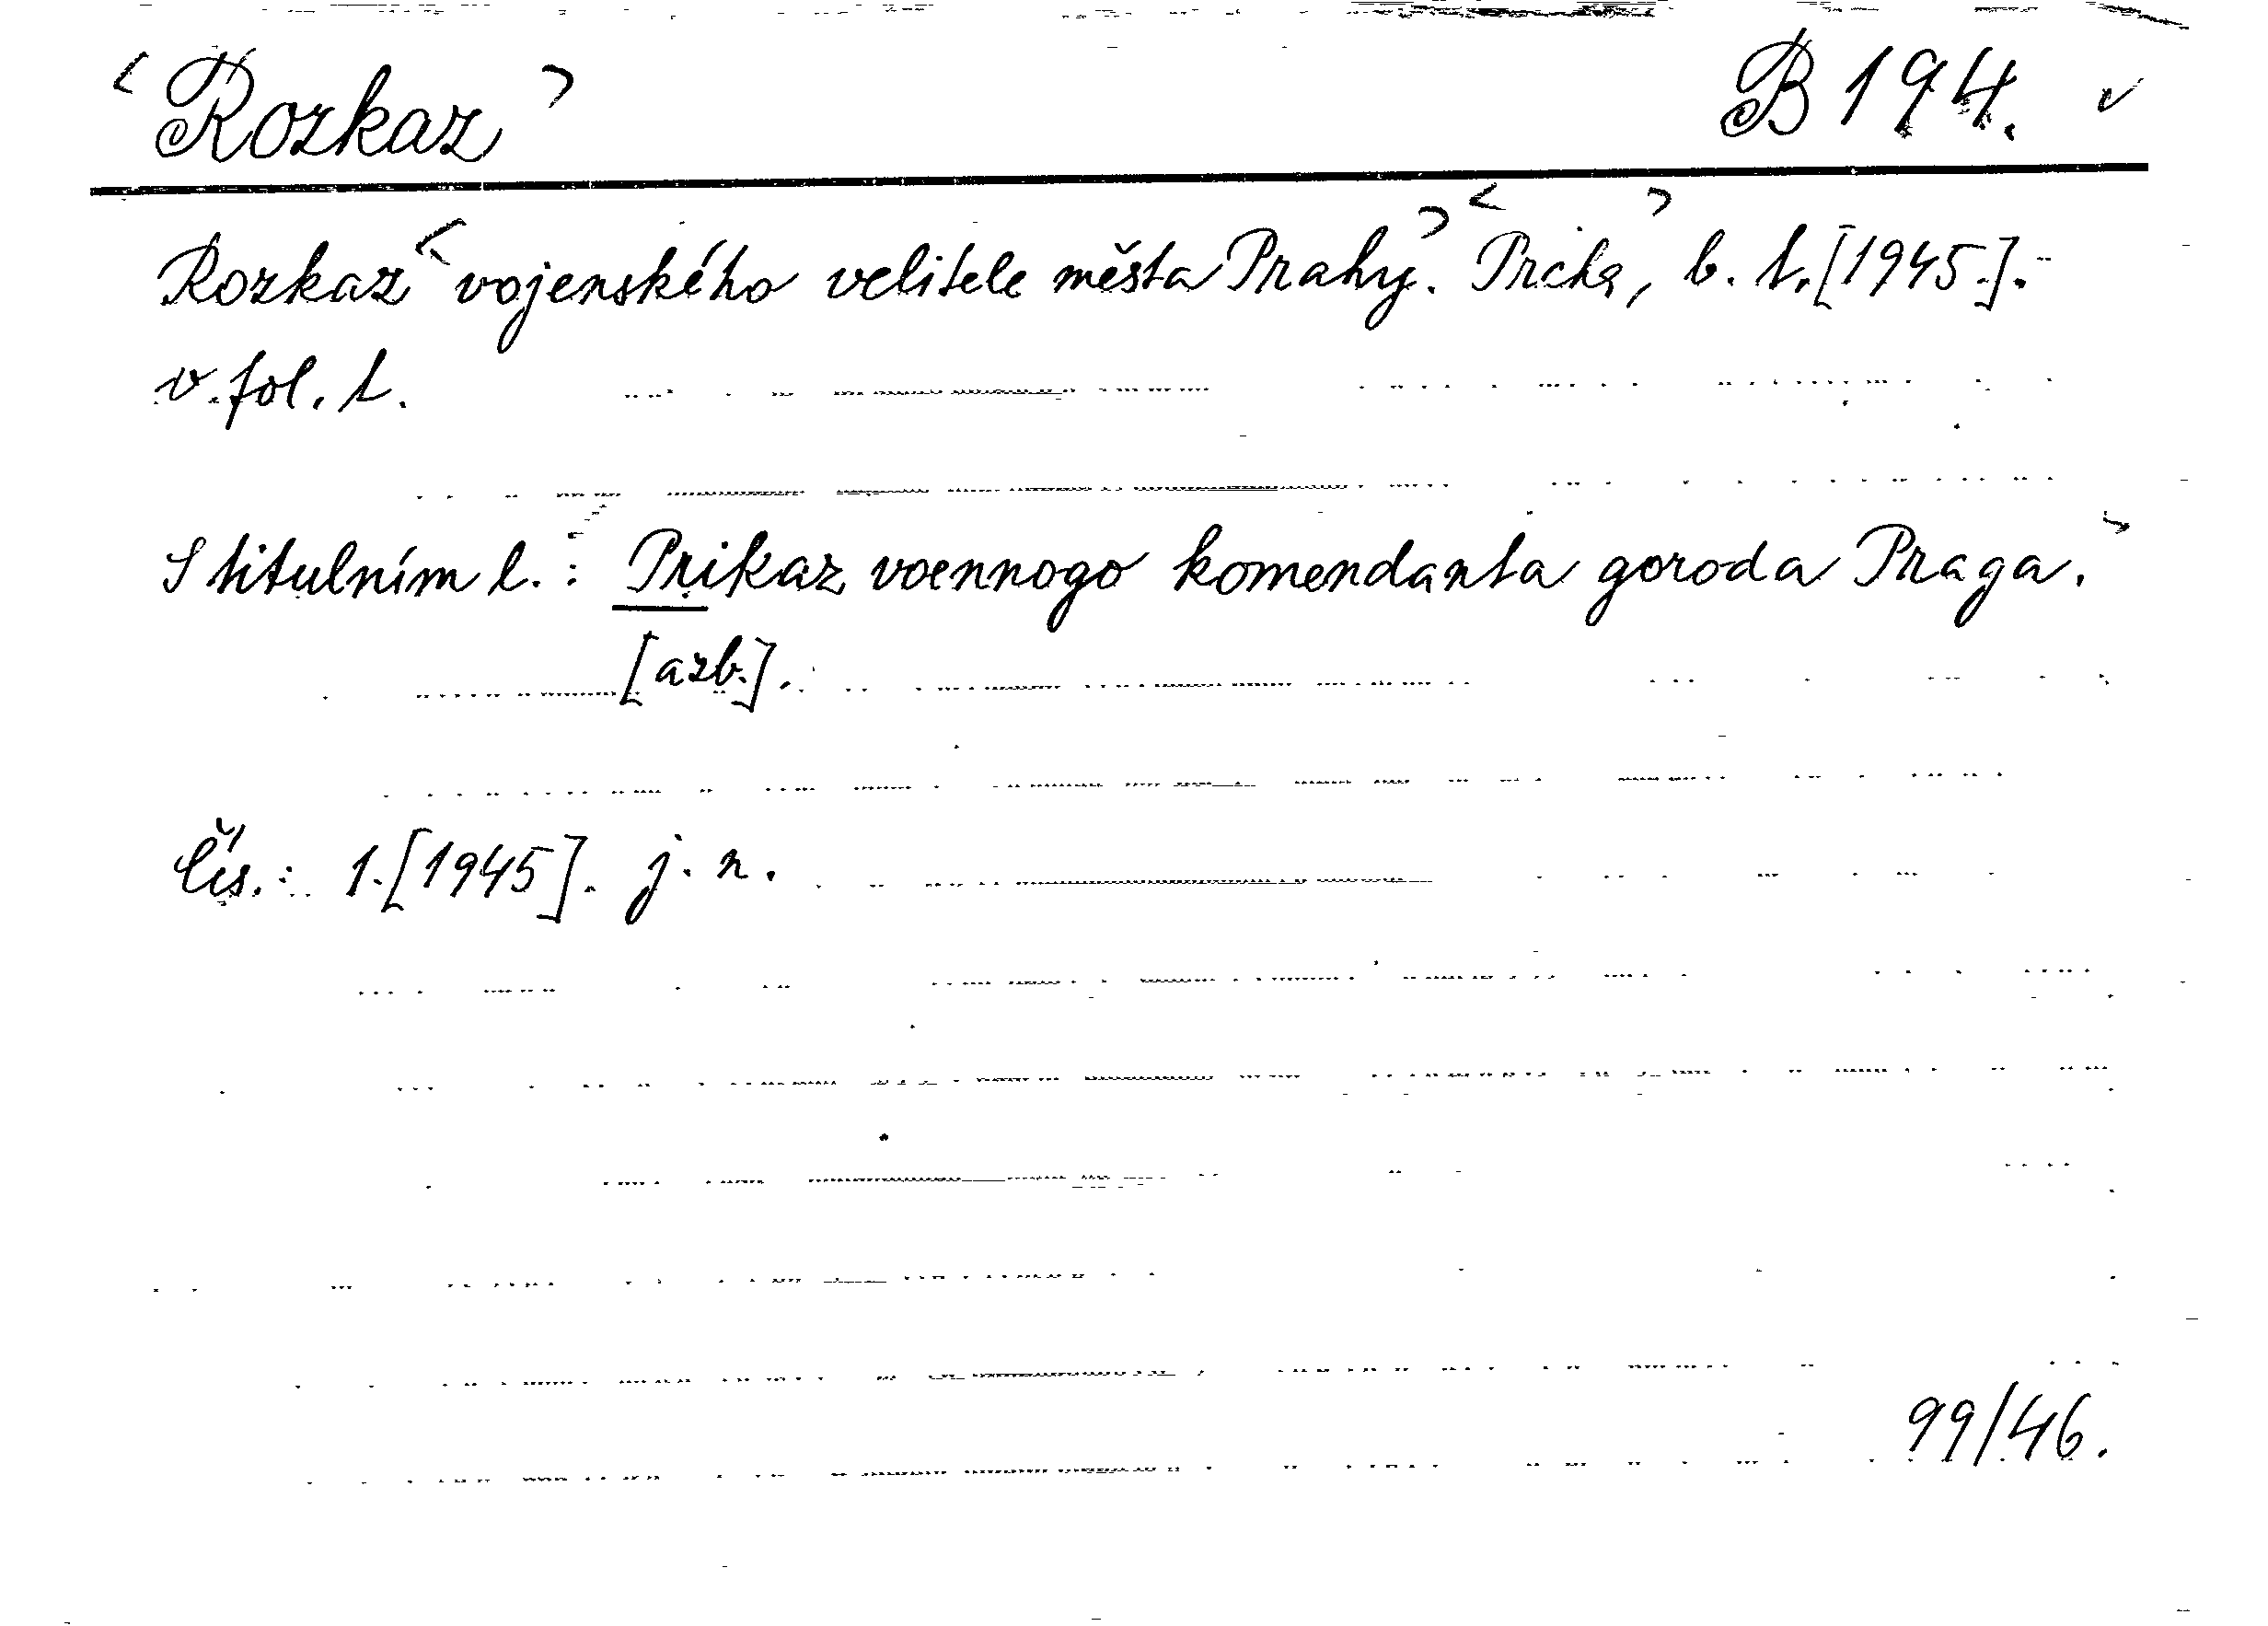 <Rozkaz> B 194. v
Rozkaz <vojenského velitele města Prahy.> <Praha>, b. t. [1945.].-
v. fol. t.
S titulním l.: <Prikaz voennogo komendanta goroda Praga.>
[azb.].
Čís.: 1.[1945]. j. n.
99/46.